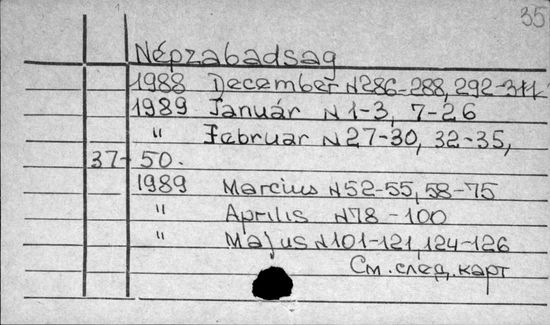 35
Népszabadsag
1988 December N286-288, 292-311
1989 Január N 1-3, 7-26
" Február N 27-30, 32-35,
37-50.
1989 Március N52-55, 58-75
" Április N78-100
" Május N101-121, 124-126
См. след. карт